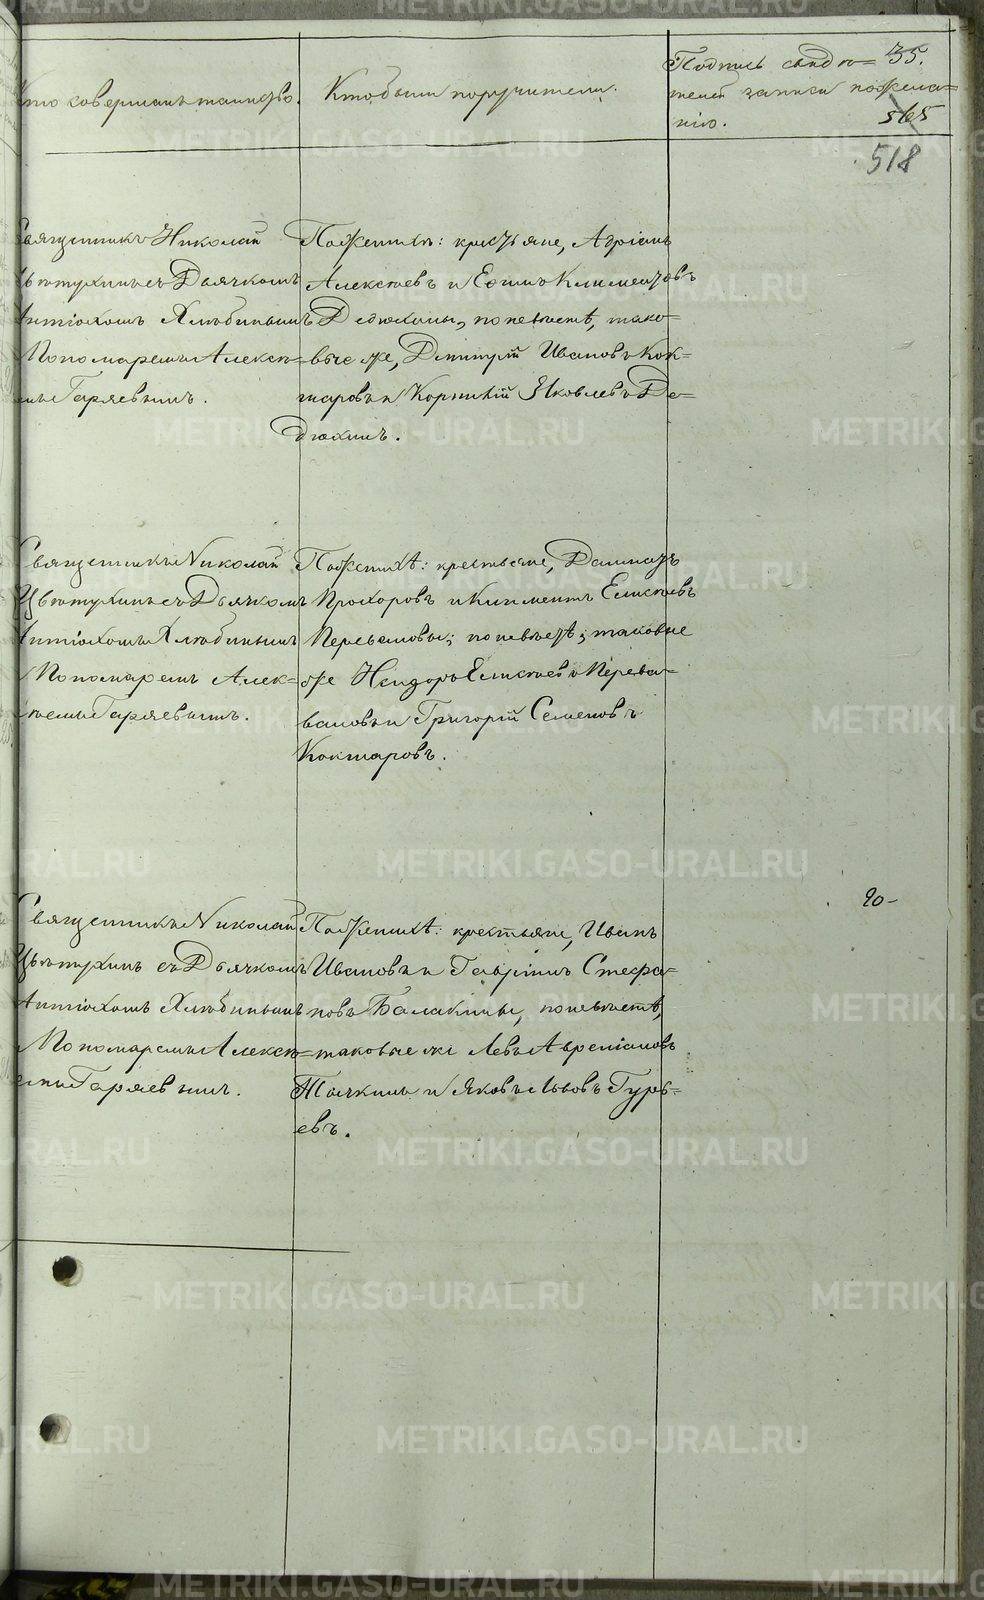 Кто совершалъ таинство.
Кто были поручители.
Подпись свидѣ=
телей записи по жела=
нію.
35.
565
518
Священникъ Николай
Цвѣтухинъ съ Дьячкомъ
Антіохомъ Хлюбинымъ
Пономаремъ Алексѣ=
емъ Гаряевымъ.
По женихѣ: крестьяне, Адріанъ
Алексѣевъ и Ефимъ Климентовъ
Дедюхины, по невѣстѣ, тако=
вые же, Дмитрій Ивановъ Кок=
шаровъ и Корнилій Яковлевъ Де=
дюхинъ.
Священникъ Николай
Цвѣтухинъ съ Дьячкомъ
Антіохомъ Хлюбинымъ
Пономаремъ Алек=
сѣемъ Гаряевымъ.
По женихѣ: крестьяне,
Прохоровъ и Климентъ Елисѣевъ
Переваловы; по невѣстѣ; таковые
же Исидоръ Елисѣевъ Перева=
валовъ и Григорій Семеновъ
Кокшаровъ.
Священникъ Николай
Цвѣтухинъ съ Дьячкомъ
Антіохомъ Хлюбинымъ
Пономаремъ Алексѣ=
емъ Гаряевымъ.
По женихѣ: крестьяне, Иванъ
Ивановъ и Гавріилъ Стефа=
новъ Балакины, по невѣстѣ,
таковые же Левъ Авреліановъ
Тычкинъ и Яковъ Львовъ Гурь=
евъ.
20-
METRIKI.GASO-URAL.RU